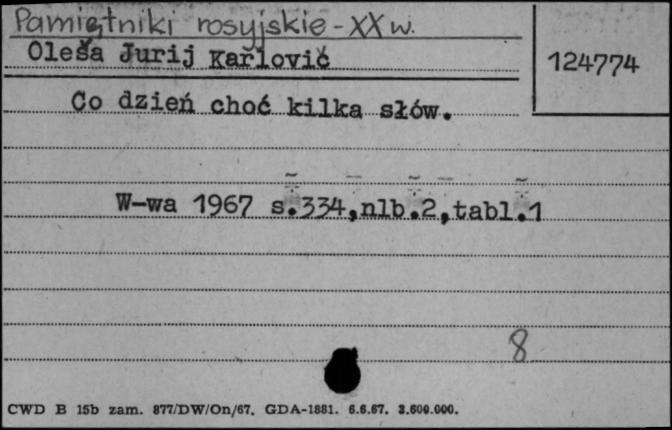 Pamiętniki rosyjskie - XX w.
Oleša Jurij Karlovič
124774
Co dzień choć kilka słów.
W-wa 1967 s.334,nlb.2,tabl.1
8
CWD B 15b zam. 877/DW/On/67. GDA-1881. 6.6.67. 3.600.000.